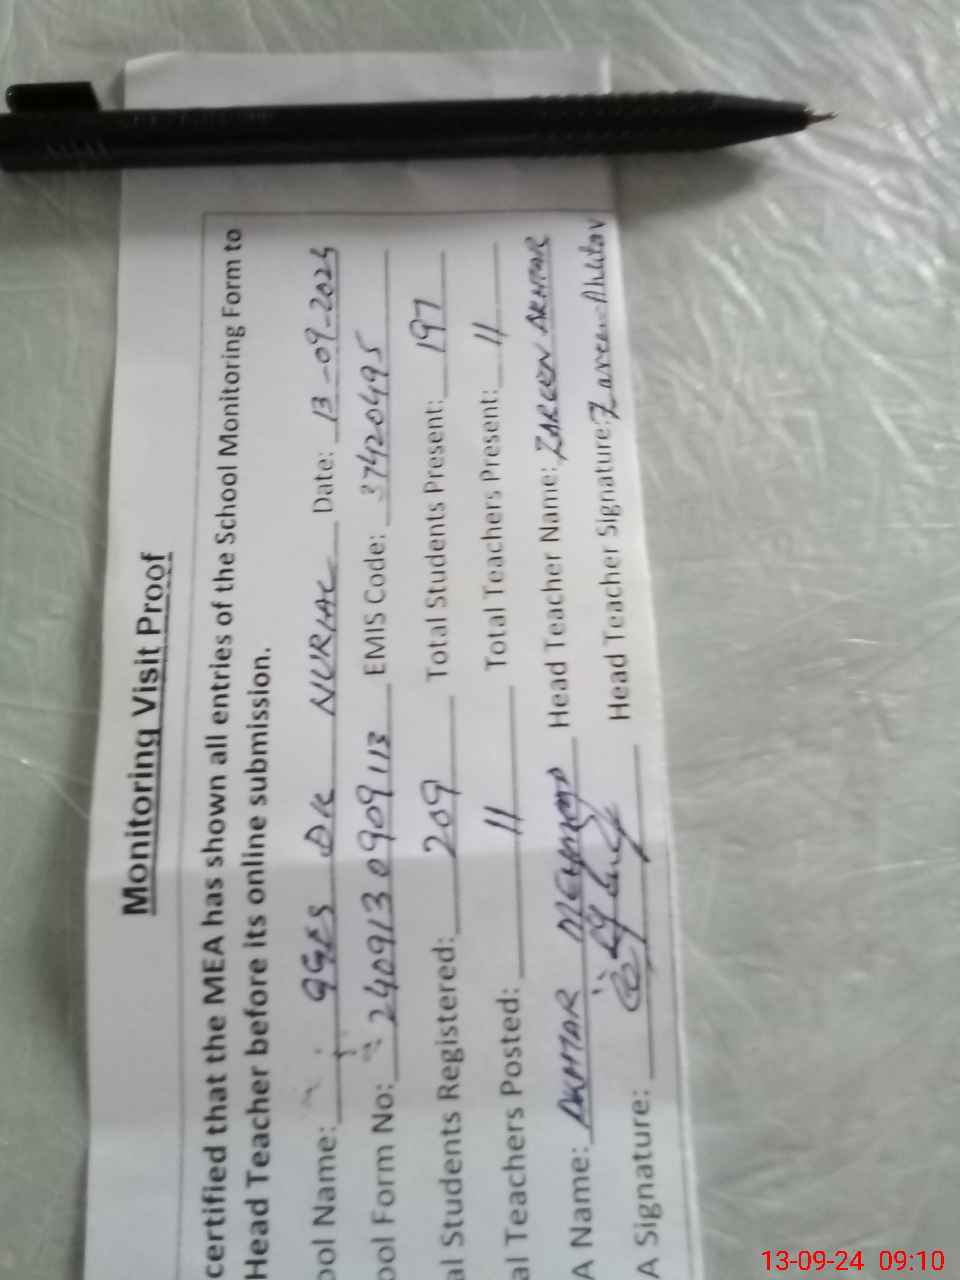 Monitoring Visit Proof
certified that the MEA has shown all entries of the School Monitoring Form to
Head Teacher before its online submission.
ool Name: GGES DK NURIAL Date: 13-09-2024
ool Form No: 2409130909113 EMIS Code: 37420495
al Students Registered: 209 Total Students Present: 197
al Teachers Posted: 11 Total Teachers Present: 11
A Name: AKHTAR MEHMOOD Head Teacher Name: ZAREEN AKHTAR
A Signature: Head Teacher Signature: Zareen Akhtar
13-09-24 09:10